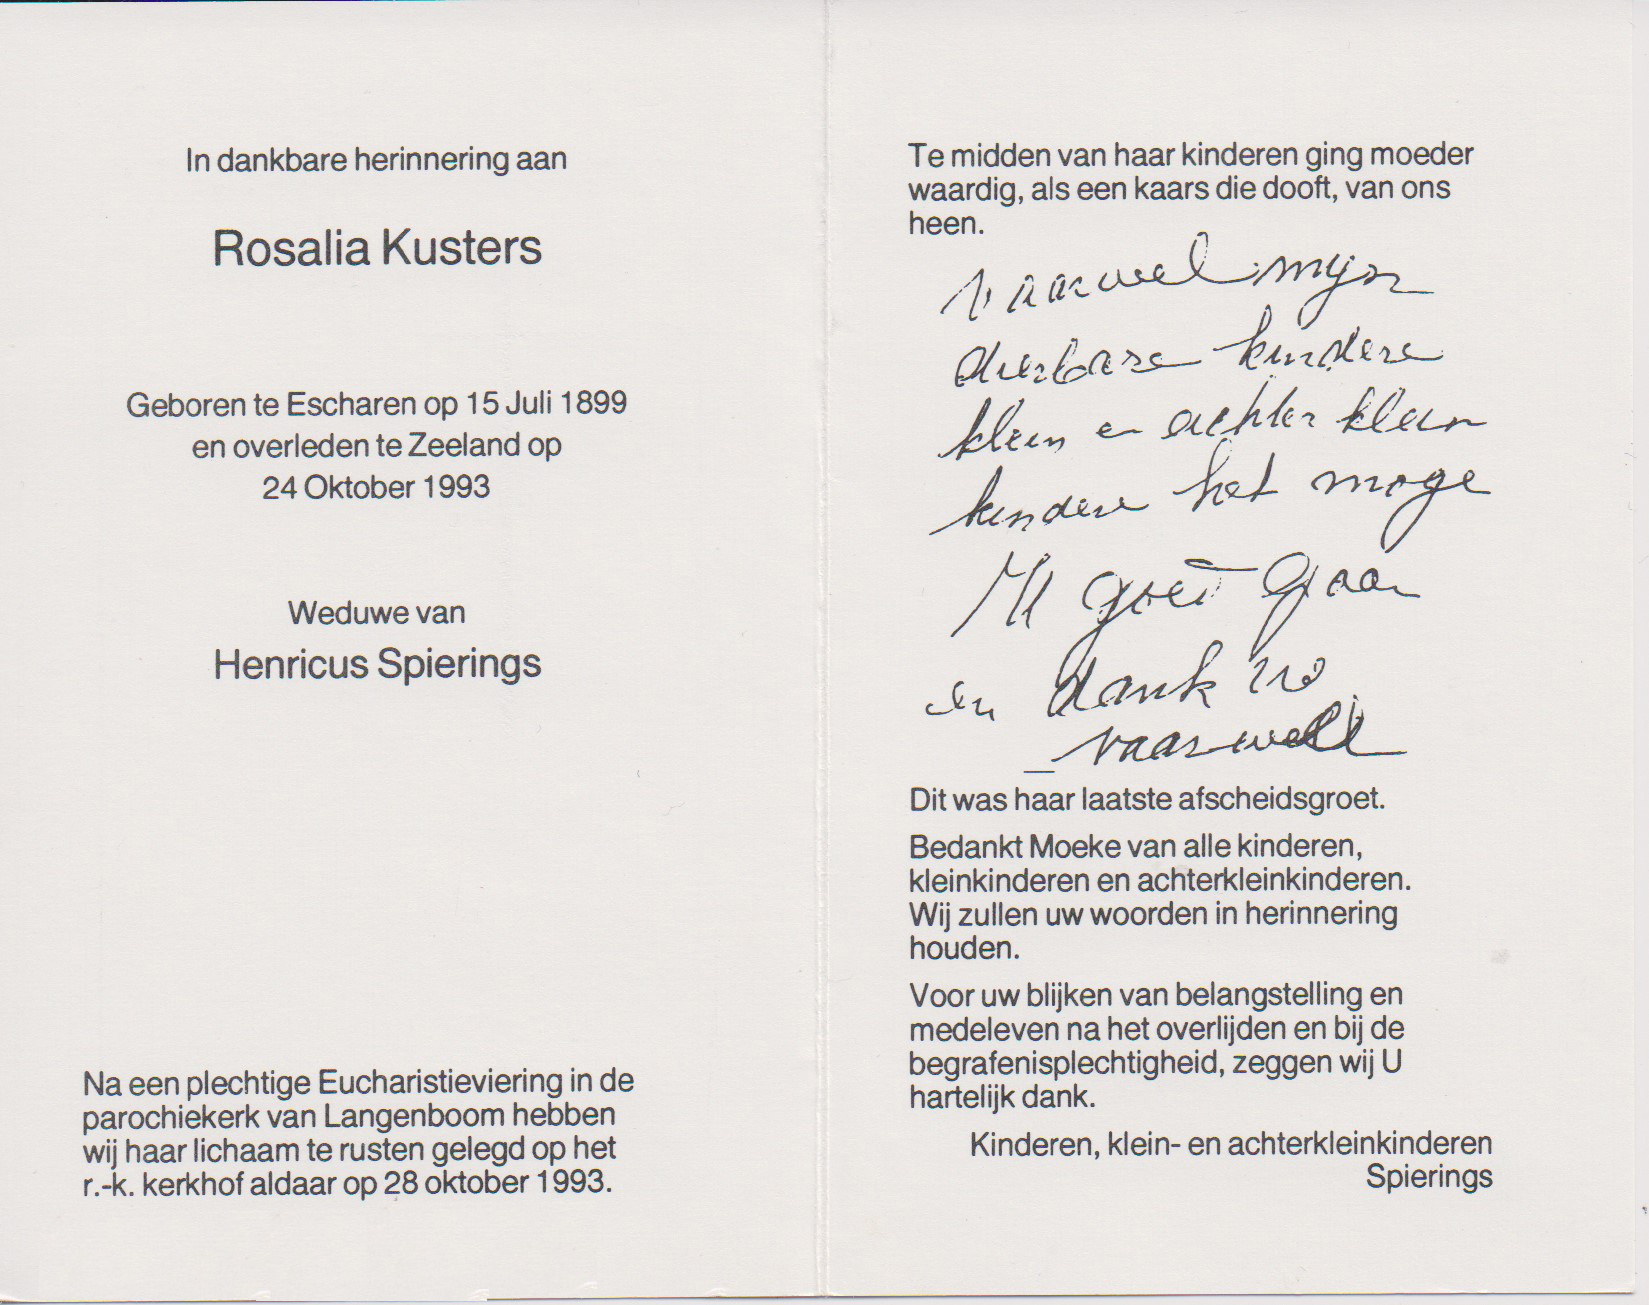 In dankbare herinnering aan
Rosalia Kusters
Geboren te Escharen op 15 Juli 1899
en overleden te Zeeland op
24 Oktober 1993
Weduwe van
Henricus Spierings
Na een plechtige Eucharistieviering in de
parochiekerk van Langenboom hebben
wij haar lichaam te rusten gelegd op het
r.-k. kerkhof aldaar op 28 oktober 1993.
Te midden van haar kinderen ging moeder
waardig, als een kaars die dooft, van ons
heen.
vaarwel mijn
dierbare kindere
klein en achter klein
kindere het moge
U goed gaan
en dank
vaarwell
Dit was haar laatste afscheidsgroet.
Bedankt Moeke van alle kinderen,
kleinkinderen en achterkleinkinderen.
Wij zullen uw woorden in herinnering
houden.
Voor uw blijken van belangstelling en
medeleven na het overlijden en bij de
begrafenisplechtigheid, zeggen wij U
hartelijk dank.
Kinderen, klein- en achterkleinkinderen
Spierings